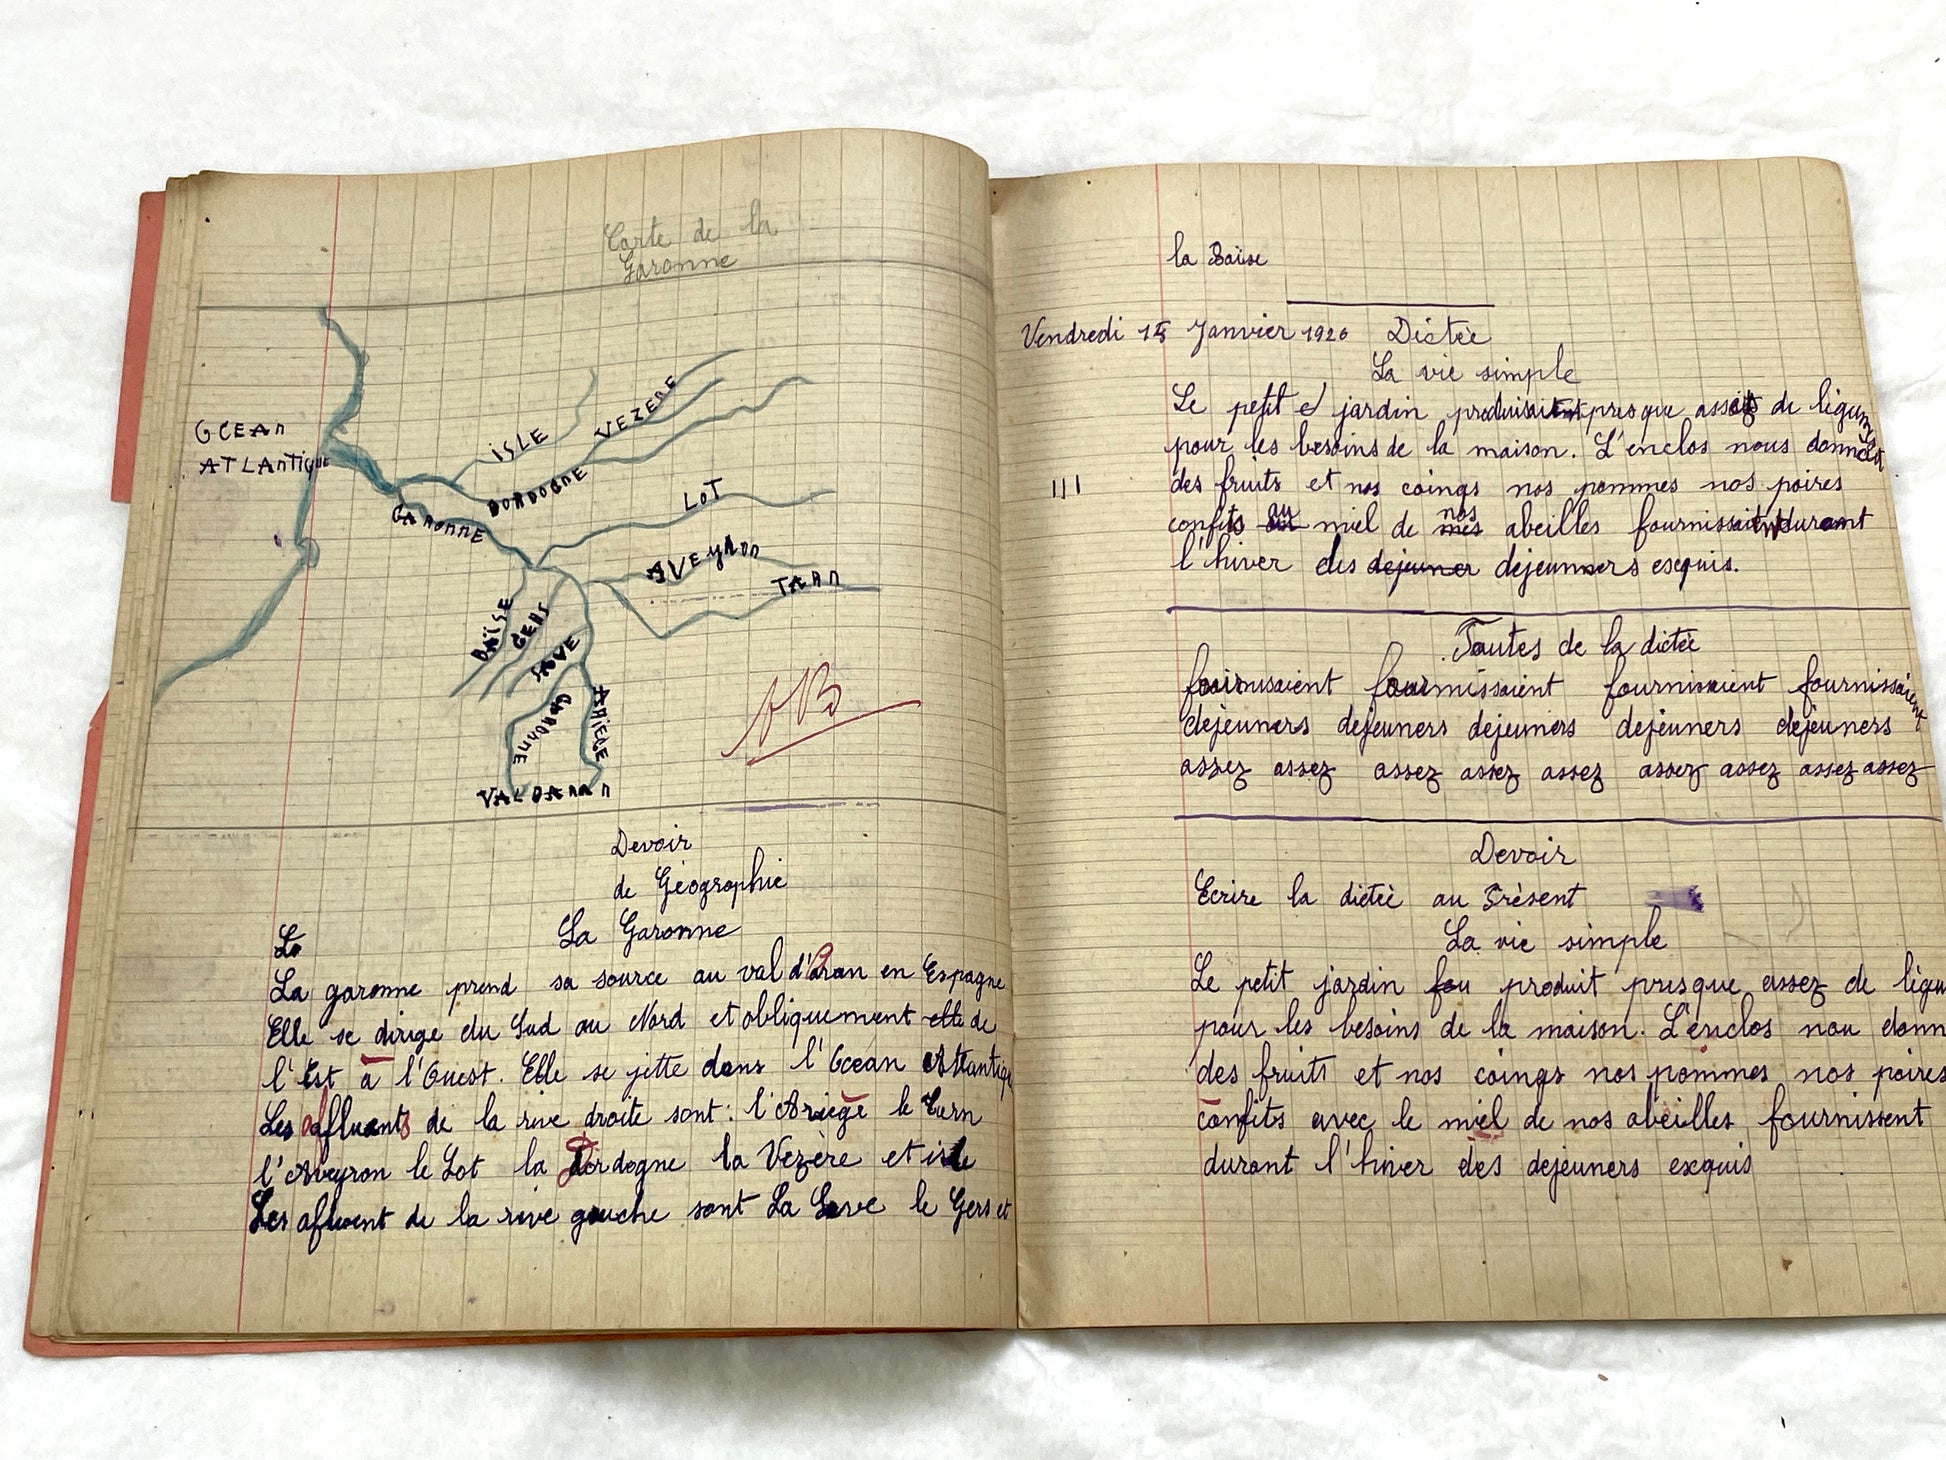 Carte de la
Garonne
OCEAN
ATLAntique
ISLE
VEZERE
DORDOGNE
GARONNE
LOT
AVEyRon
TARn
BAÏSE
GERS
SAVE
GARONNE
ARIEGE
VALDARAn
Devoir
de Géographie
La Garonne
La garonne prend sa source au val d'aran en Espagne
Elle se dirige du Sud au Nord et obliquement elle de
l'Est a l'Ouest. Elle se jette dans l'Ocean Atlantique
Les affluents de la rive droite sont: l'Ariège le Tarn
l'Aveyron le Lot la Dordogne la Vezère et isle
Les afluent de la rive gauche sont La Save le Gers et
la Baïse
Vendredi 15 Janvier 1926 Dictée
La vie simple
Le petit jardin produisait presque assez de légumes
pour les besoins de la maison. L'enclos nous donnait
III
des fruits et nos coings nos pommes nos poires
confits au miel de mes nos abeilles fournissaient durant
l'hiver des dejeuner dejeunners esequis.
Fautes de la dictée
fournissaient fournissaient fournissaient fournissaient
dejeuners dejeuners dejeuners dejeuners dejeuners
assez assez assez assez assez assez assez assez assez
Devoir
Ecrire la dictée au Présent
La vie simple
Le petit jardin produit presque assez de légu
pour les besoins de la maison. L'enclos nou donn
des fruits et nos coings nos pommes nos poires
confits avec le miel de nos abeilles fournissent
durant l'hiver des dejeuners exquis